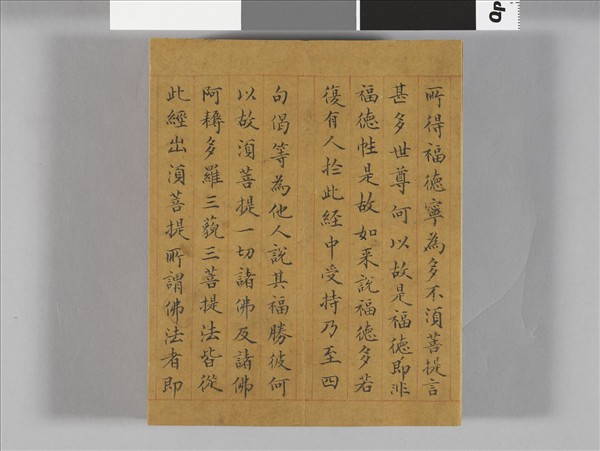 所得福德寧為多不湏菩提言
甚多世尊何以故是福德即非
福德性是故如来說福德多若
復有人扵此経中受持乃至四
句偈等為他人說其福勝彼何
以故湏菩提一切諸佛及諸佛
阿耨多羅三藐三菩提法皆從
此經出湏菩提所謂佛法者即